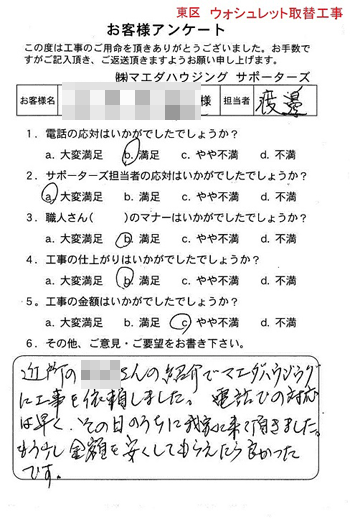 東区 ウォシュレット取替工事
お客様アンケート
この度は工事のご用命を頂きありがとうございました。お手数で
すがご記入頂き、ご返送頂きますようお願い申し上げます。
㈱マエダハウジング サポーターズ
お客様名 様 担当者 渡邉
1．電話の応対はいかがでしたでしょうか？
a. 大変満足 b. 満足 c. やや不満 d. 不満
2．サポーターズ担当者の応対はいかがでしたでしょうか？
a. 大変満足 b. 満足 c. やや不満 d. 不満
3．職人さん( )のマナーはいかがでしたでしょうか？
a. 大変満足 b. 満足 c. やや不満 d. 不満
4．工事の仕上がりはいかがでしたでしょうか？
a. 大変満足 b. 満足 c. やや不満 d. 不満
5．工事の金額はいかがでしたでしょうか？
a. 大変満足 b. 満足 c. やや不満 d. 不満
6．その他、ご意見・ご要望をお書き下さい。
近所の さんの紹介でマエダハウジング
に工事を依頼しました。電話での対応
は早く、その日のうちに我家に来て頂きました。
もう少し金額を安くしてもらえたら良かった
です。